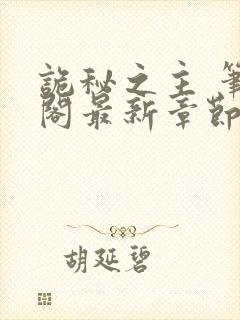 詭秘之主 筆
閣最新章節
胡延碧